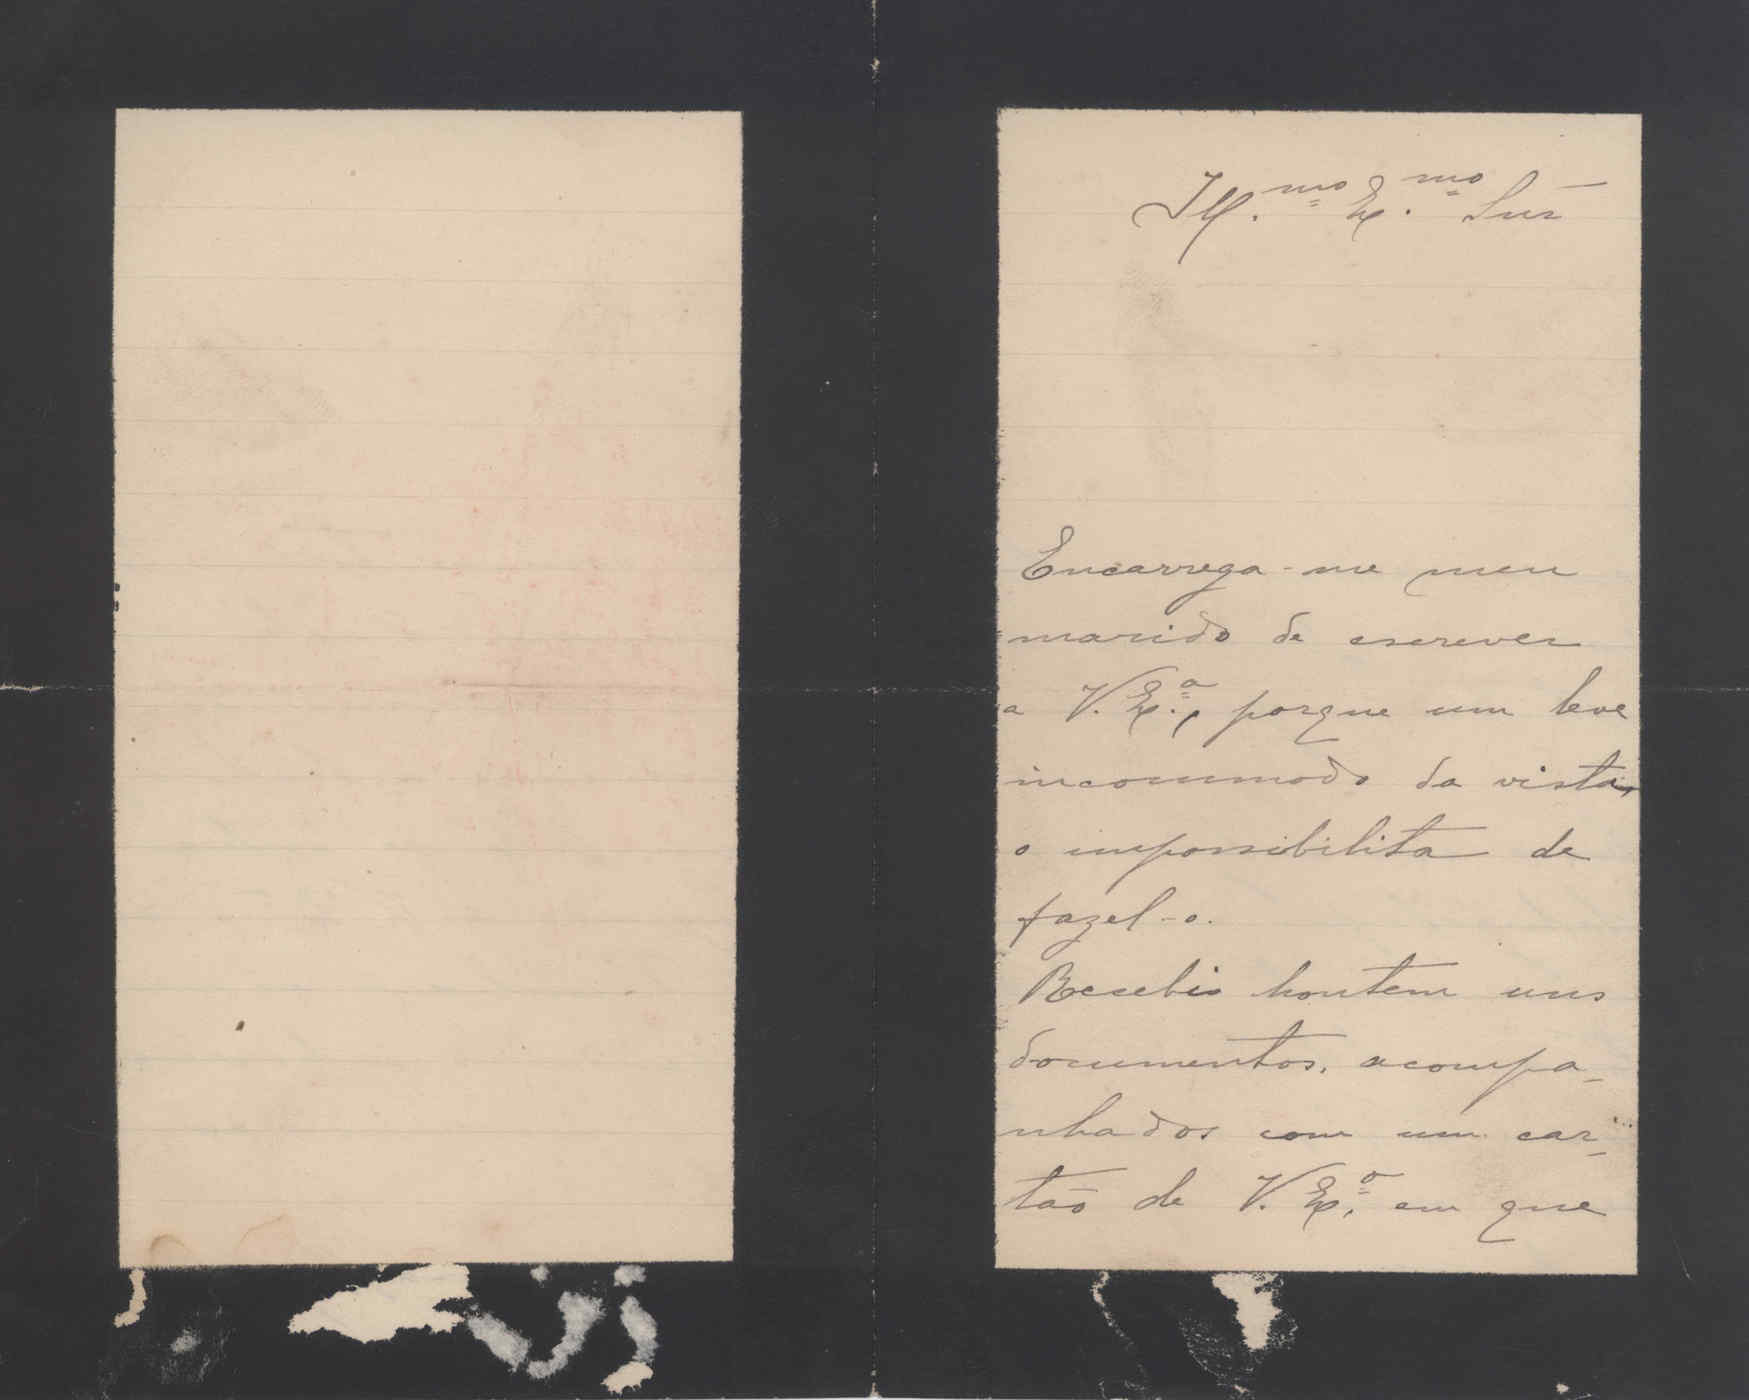 Ill.mo Ex.mo Snr
Encarrega-me meu
marido de escrever
a V. Ex.a, porque um leve
incommodo da vista,
o impossibilita de
fazel-o.
Recebio hontem uns
documentos, acompa-
nhados com um car-
tão de V. Ex.a em que